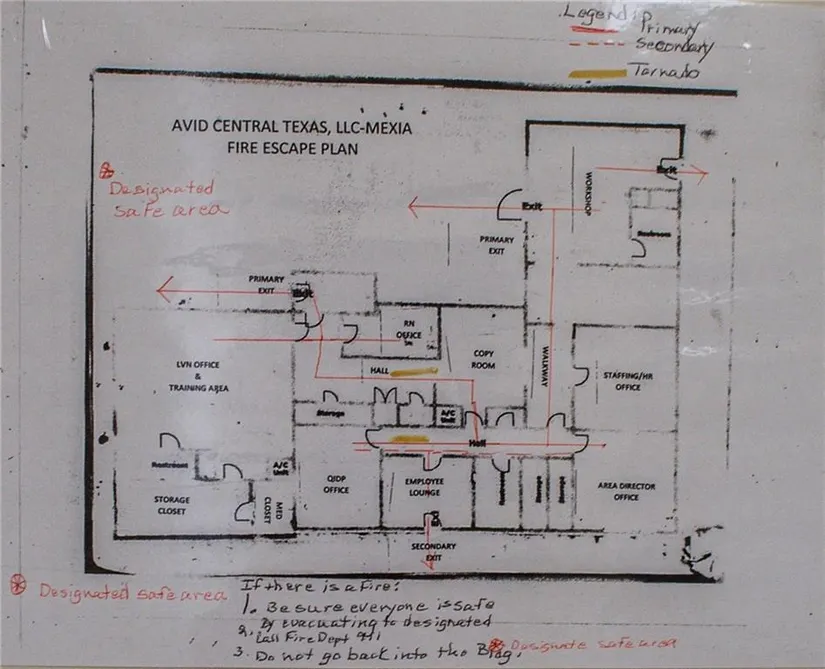 Legend:
Primary
Secondary
Tornado
AVID CENTRAL TEXAS, LLC-MEXIA
FIRE ESCAPE PLAN
Designated
safe area
Exit
WORKSHOP
Exit
Restroom
PRIMARY
EXIT
PRIMARY
EXIT
Exit
RN
OFFICE
LVN OFFICE
&
TRAINING AREA
HALL
COPY
ROOM
WALKWAY
STAFFING/HR
OFFICE
Storage
A/C
Unit
Hall
Restroom
A/C
Unit
STORAGE
CLOSET
MED
CLOSET
QIDP
OFFICE
EMPLOYEE
LOUNGE
Restroom
Storage
Storage
AREA DIRECTOR
OFFICE
SECONDARY
EXIT
Designated safe area
If there is a fire:
1. Be sure everyone is safe
By evacuating to designated
2. Call Fire Dept 911
3. Do not go back into the Bldg.
Designate safe area